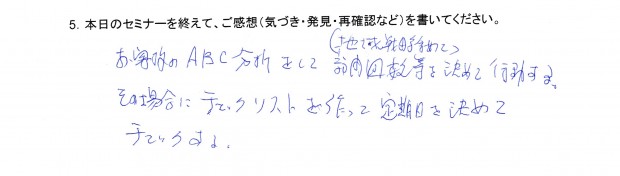 5. 本日のセミナーを終えて、ご感想(気づき・発見・再確認など)を書いてください。
(地域戦略を含めて)
お客様のABC分析をして訪問回数等を決めて行動する。
その場合にチェックリストを作って定期日を決めて
チェックする。